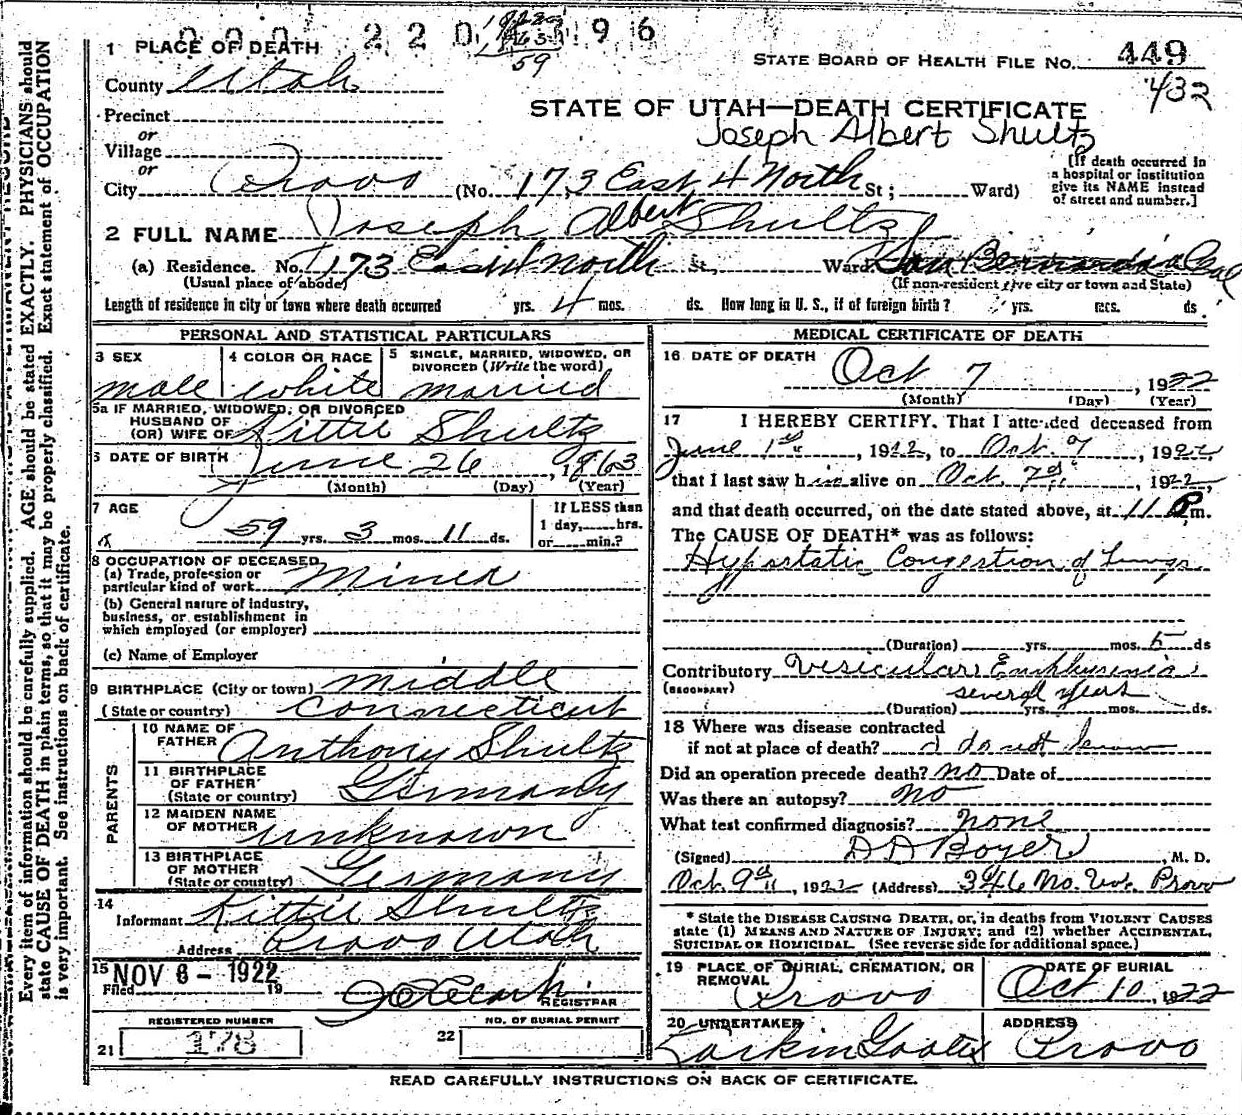 000 220 496
1922
1863
59
1 PLACE OF DEATH
STATE BOARD OF HEALTH FILE No. 449
County Utah
432
Precinct
STATE OF UTAH—DEATH CERTIFICATE
or
Joseph Albert Shultz
Village
or
City Provo (No. 173 East 4 North St; Ward)
[If death occurred in
a hospital or institution
give its NAME instead
of street and number.]
2 FULL NAME Joseph Albert Shultz
(a) Residence. No. 173 East 4 North St., Ward San Bernardino Cal
(Usual place of abode) (If non-resident give city or town and State)
Length of residence in city or town where death occurred yrs. 4 mos. ds. How long in U. S., if of foreign birth? yrs. mos. ds.
PERSONAL AND STATISTICAL PARTICULARS
3 SEX 4 COLOR OR RACE 5 SINGLE, MARRIED, WIDOWED, OR
DIVORCED (Write the word)
male white married
5a IF MARRIED, WIDOWED, OR DIVORCED
HUSBAND OF
(OR) WIFE OF Kittie Shultz
6 DATE OF BIRTH June 26, 1863
(Month) (Day) (Year)
7 AGE If LESS than
1 day, hrs.
59 yrs. 3 mos. 11 ds. or min.?
8 OCCUPATION OF DECEASED
(a) Trade, profession or
particular kind of work Miner
(b) General nature of industry,
business, or establishment in
which employed (or employer)
(c) Name of Employer
9 BIRTHPLACE (City or town) Middle
(State or country) Connecticut
PARENTS
10 NAME OF
FATHER Anthony Shultz
11 BIRTHPLACE
OF FATHER
(State or country) Germany
12 MAIDEN NAME
OF MOTHER unknown
13 BIRTHPLACE
OF MOTHER
(State or country) Germany
14
Informant Kittie Shultz
Address Provo Utah
15 NOV 6 - 1922
Filed 19
REGISTRAR
REGISTERED NUMBER NO. OF BURIAL PERMIT
21 178 22
MEDICAL CERTIFICATE OF DEATH
16 DATE OF DEATH
Oct 7, 1922
(Month) (Day) (Year)
17 I HEREBY CERTIFY. That I attended deceased from
June 1st, 1922, to Oct. 7, 1922,
that I last saw him alive on Oct. 7, 1922,
and that death occurred, on the date stated above, at 11 P m.
The CAUSE OF DEATH* was as follows:
Hypostatic Congestion of Lungs
(Duration) yrs. mos. 5 ds
Contributory Vesicular Emphysemia
(SECONDARY) several years
(Duration) yrs. mos. ds.
18 Where was disease contracted
if not at place of death? I do not know
Did an operation precede death? no Date of
Was there an autopsy? no
What test confirmed diagnosis? none
(Signed) D D Boyer, M. D.
Oct. 9, 1922 (Address) 346 No. Uv. Provo
* State the DISEASE CAUSING DEATH, or, in deaths from VIOLENT CAUSES
state (1) MEANS AND NATURE OF INJURY; and (2) whether ACCIDENTAL,
SUICIDAL OR HOMICIDAL. (See reverse side for additional space.)
19 PLACE OF BURIAL, CREMATION, OR
REMOVAL Provo
DATE OF BURIAL
Oct 10, 1922
20 UNDERTAKER ADDRESS
Larkin Provo
READ CAREFULLY INSTRUCTIONS ON BACK OF CERTIFICATE.
Every item of information should be carefully supplied. AGE should be stated EXACTLY. PHYSICIANS should
state CAUSE OF DEATH in plain terms, so that it may be properly classified. Exact statement of OCCUPATION
is very important. See instructions on back of certificate.